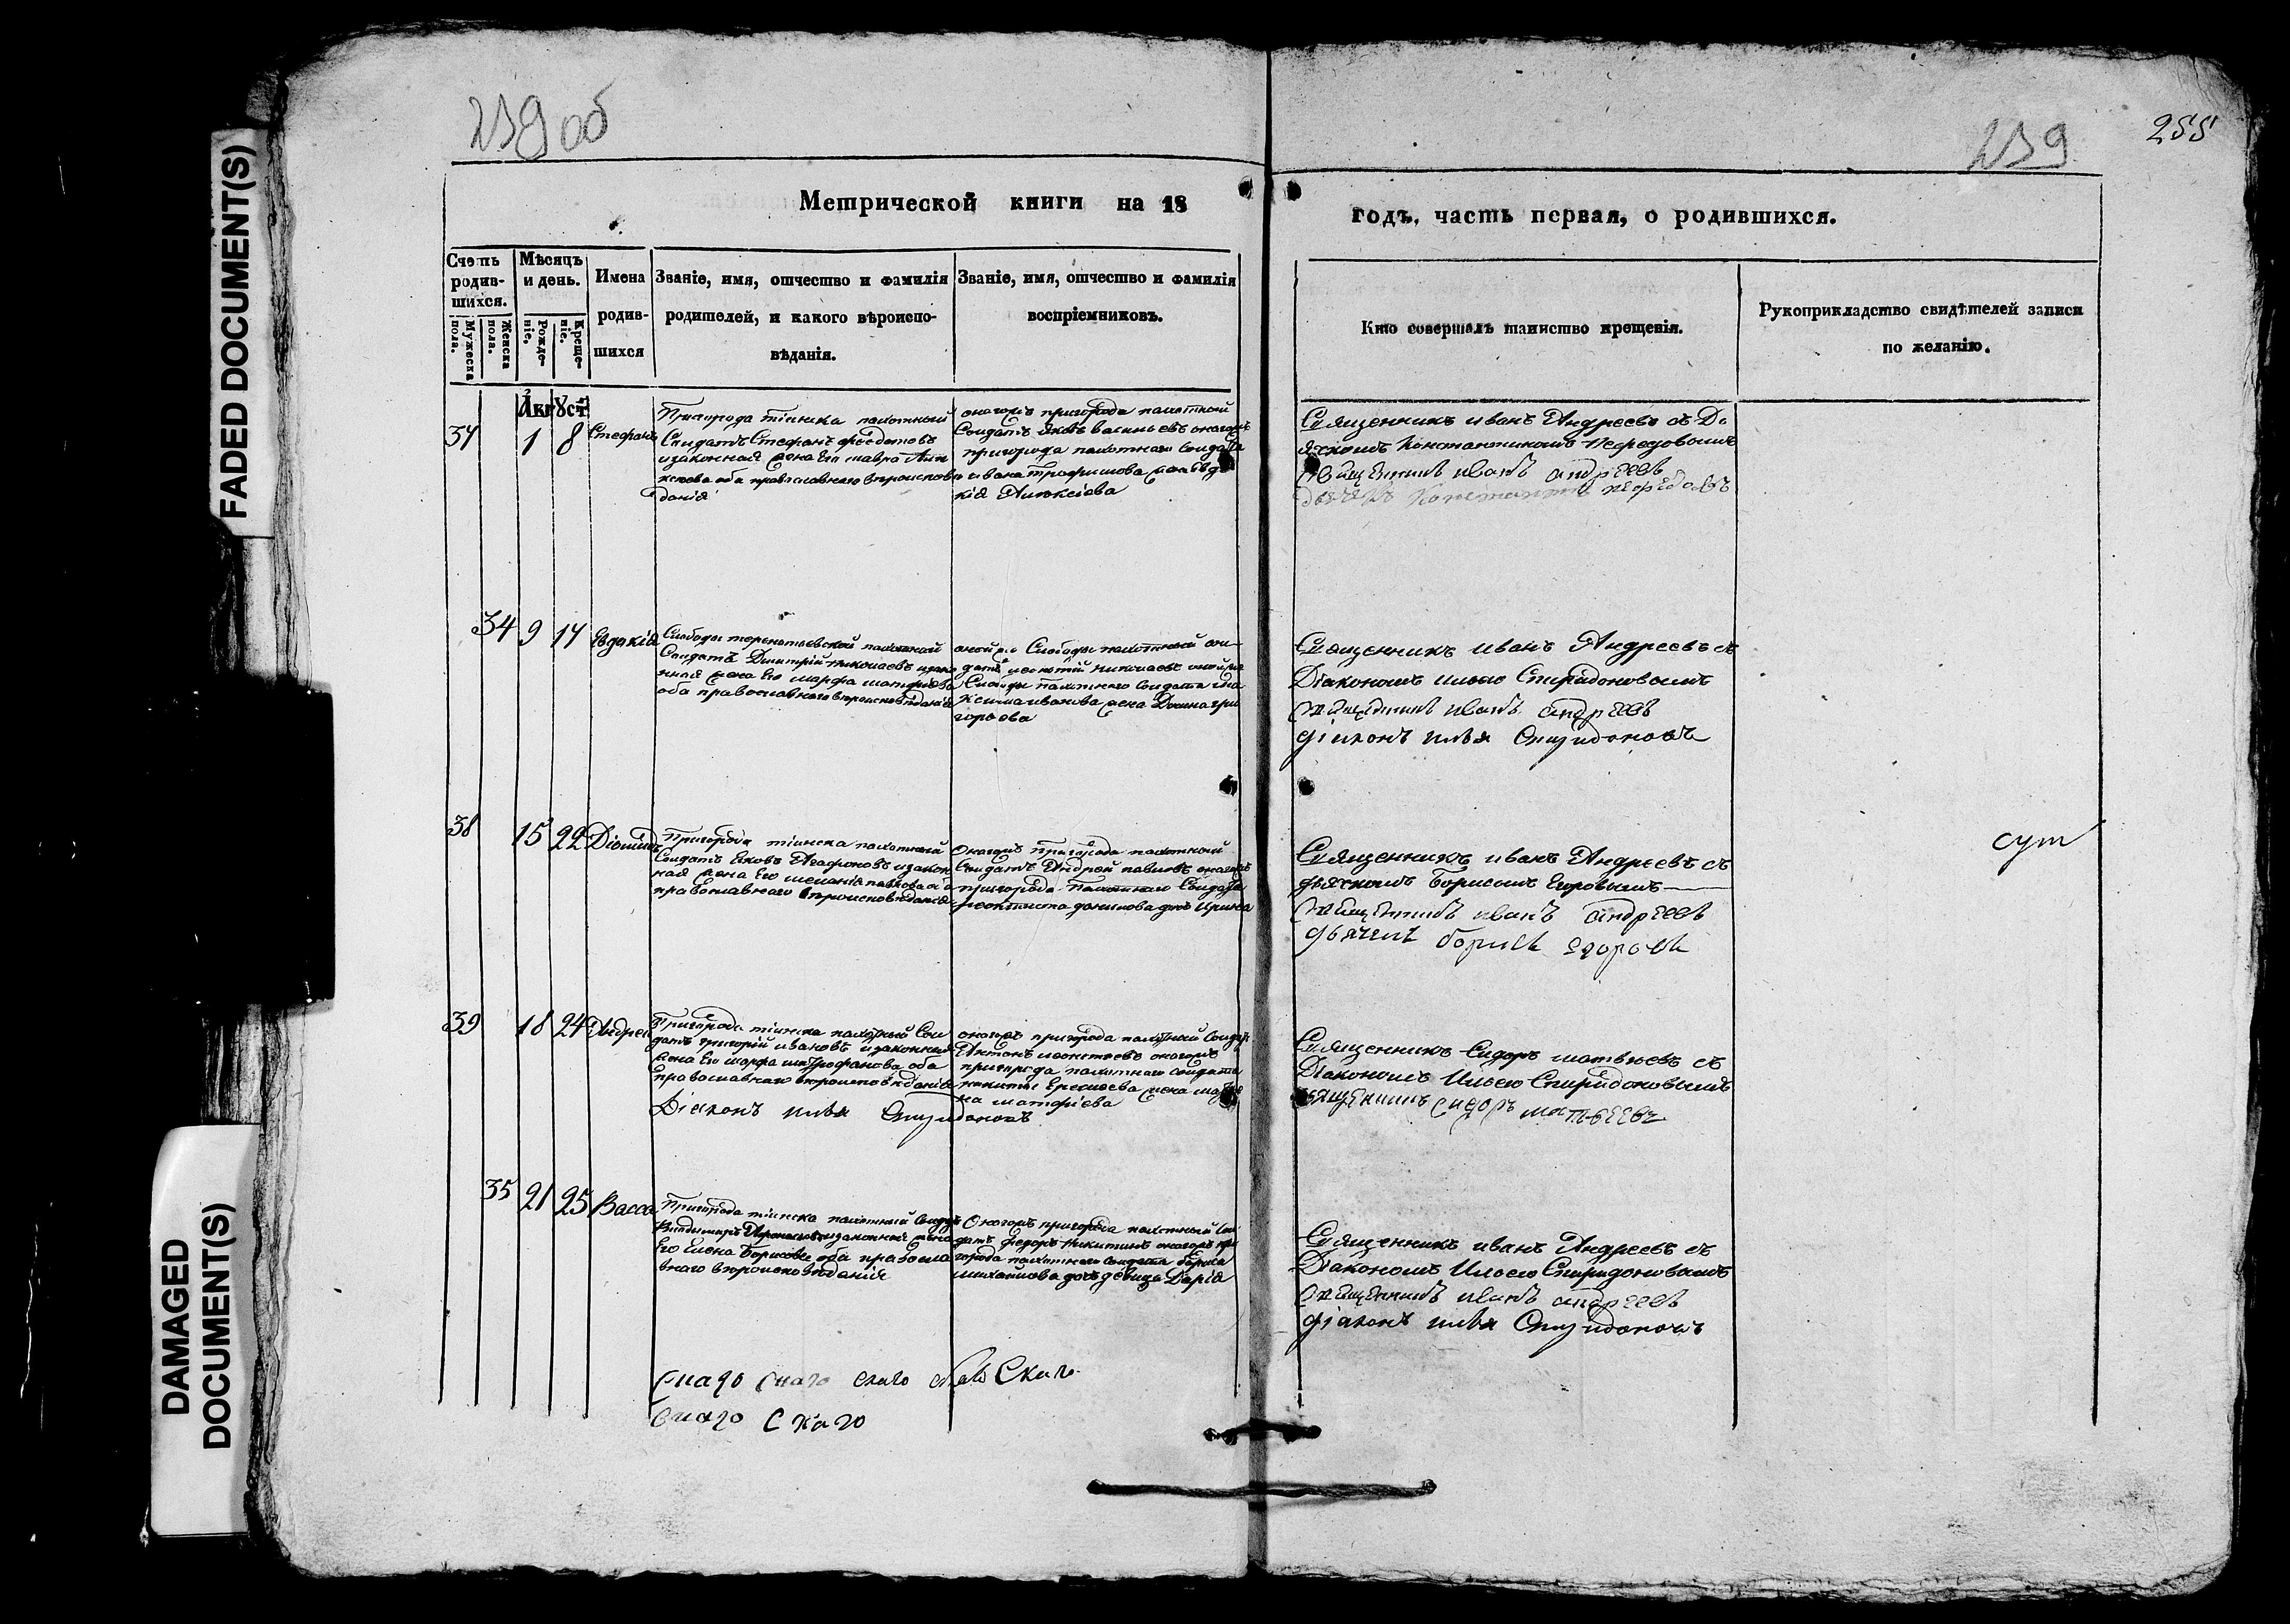 FADED DOCUMENT(S)
DAMAGED DOCUMENT(S)
239 об
239
255
Метрической книги на 18
годъ, часть первая, о родившихся.
Счетъ родив-шихся.
Мужеска пола.
Женска пола.
Мѣсяцъ и день.
Рожде-ніе.
Креще-ніе.
Имена родив-шихся
Званіе, имя, отчество и фамилія
родителей, и какого вѣроиспо-
вѣданія.
Званіе, имя, отчество и фамилія
воспріемниковъ.
Кто совершалъ таинство крещенія.
Рукоприкладство свидѣтелей записи
по желанію.
Август
37 1 8 Стефанъ
Пригорода тіинска пахотный
Солдатъ Стефанъ федотовъ
изаконная жена Его мавра Али
ксеева оба православнаго вѣроисповѣ
данія
онагожъ пригорода пахотный
Солдатъ Яковъ васильевъ онагожъ
пригорода пахотнаго Солдата
ивана трофимова жена Евдо
кія Алексіева
Священникъ иванъ Андреевъ съ Дь
ячкомъ Константиномъ Нефедовымъ
Священникъ иванъ андреевъ
дьячекъ Константинъ нефедовъ
34 9 17 Евдокія
Слободы терентьевской пахотный
Солдатъ Димитрій николаевъ изако
нная жена Его марфа матфіева
оба православнаго вѣроисповѣданія
оной же Слободы пахотный сол
датъ леонтій николаевъ оной же
Слободы пахотнаго Солдата
иванова жена Домна гри
горьева
Священникъ иванъ Андреевъ съ
Діакономъ Ильею Спиридоновымъ
Священникъ иванъ андреевъ
діаконъ илья Спиридоновъ
38 15 22 Діомидъ
Пригорода тіинска пахотный
Солдатъ Яковъ Агафоновъ изакон
ная жена Его меланія павлова оба
православнаго вѣроисповѣданія
Онагожъ пригорода пахотный
Солдатъ Андрей павловъ онагожъ
пригорода пахотнаго Солдата
феоктиста данилова дочь Ирина
Священникъ иванъ Андреевъ съ
дьячкомъ Борисомъ Егоровымъ
Священникъ иванъ андреевъ
дьячекъ борисъ егоровъ
сут
39 18 24 Андрей
Пригорода тіинска пахотный Сол
датъ григорій ивановъ изаконная
жена Его марфа митрофанова оба
православнаго вѣроисповѣданія
онагожъ пригорода пахотный Солдатъ
Антонъ леонтьевъ онагожъ
пригорода пахотнаго солдата
никиты Еремѣева жена
на матфіева
Діаконъ илья Спиридоновъ
Священникъ Сидоръ матвѣевъ съ
Діакономъ Ильею Спиридоновымъ
священникъ сидоръ матвеевъ
35 21 25 Васса
Пригорода тіинска пахотный Солдатъ
Владимиръ изаконная жена
Его Елена Борисова оба правосла
внаго вѣроисповѣданія
Онагожъ пригорода пахотный Сол
датъ федоръ Никитинъ онагожъ при
города пахотнаго Солдата бориса
михайлова дочь девица Дарія
Священникъ иванъ Андреевъ съ
Діакономъ Ильею Спиридоновымъ
Священникъ иванъ андреевъ
діаконъ илья Спиридоновъ
скаго скаго скаго Скаго
скаго Скаго